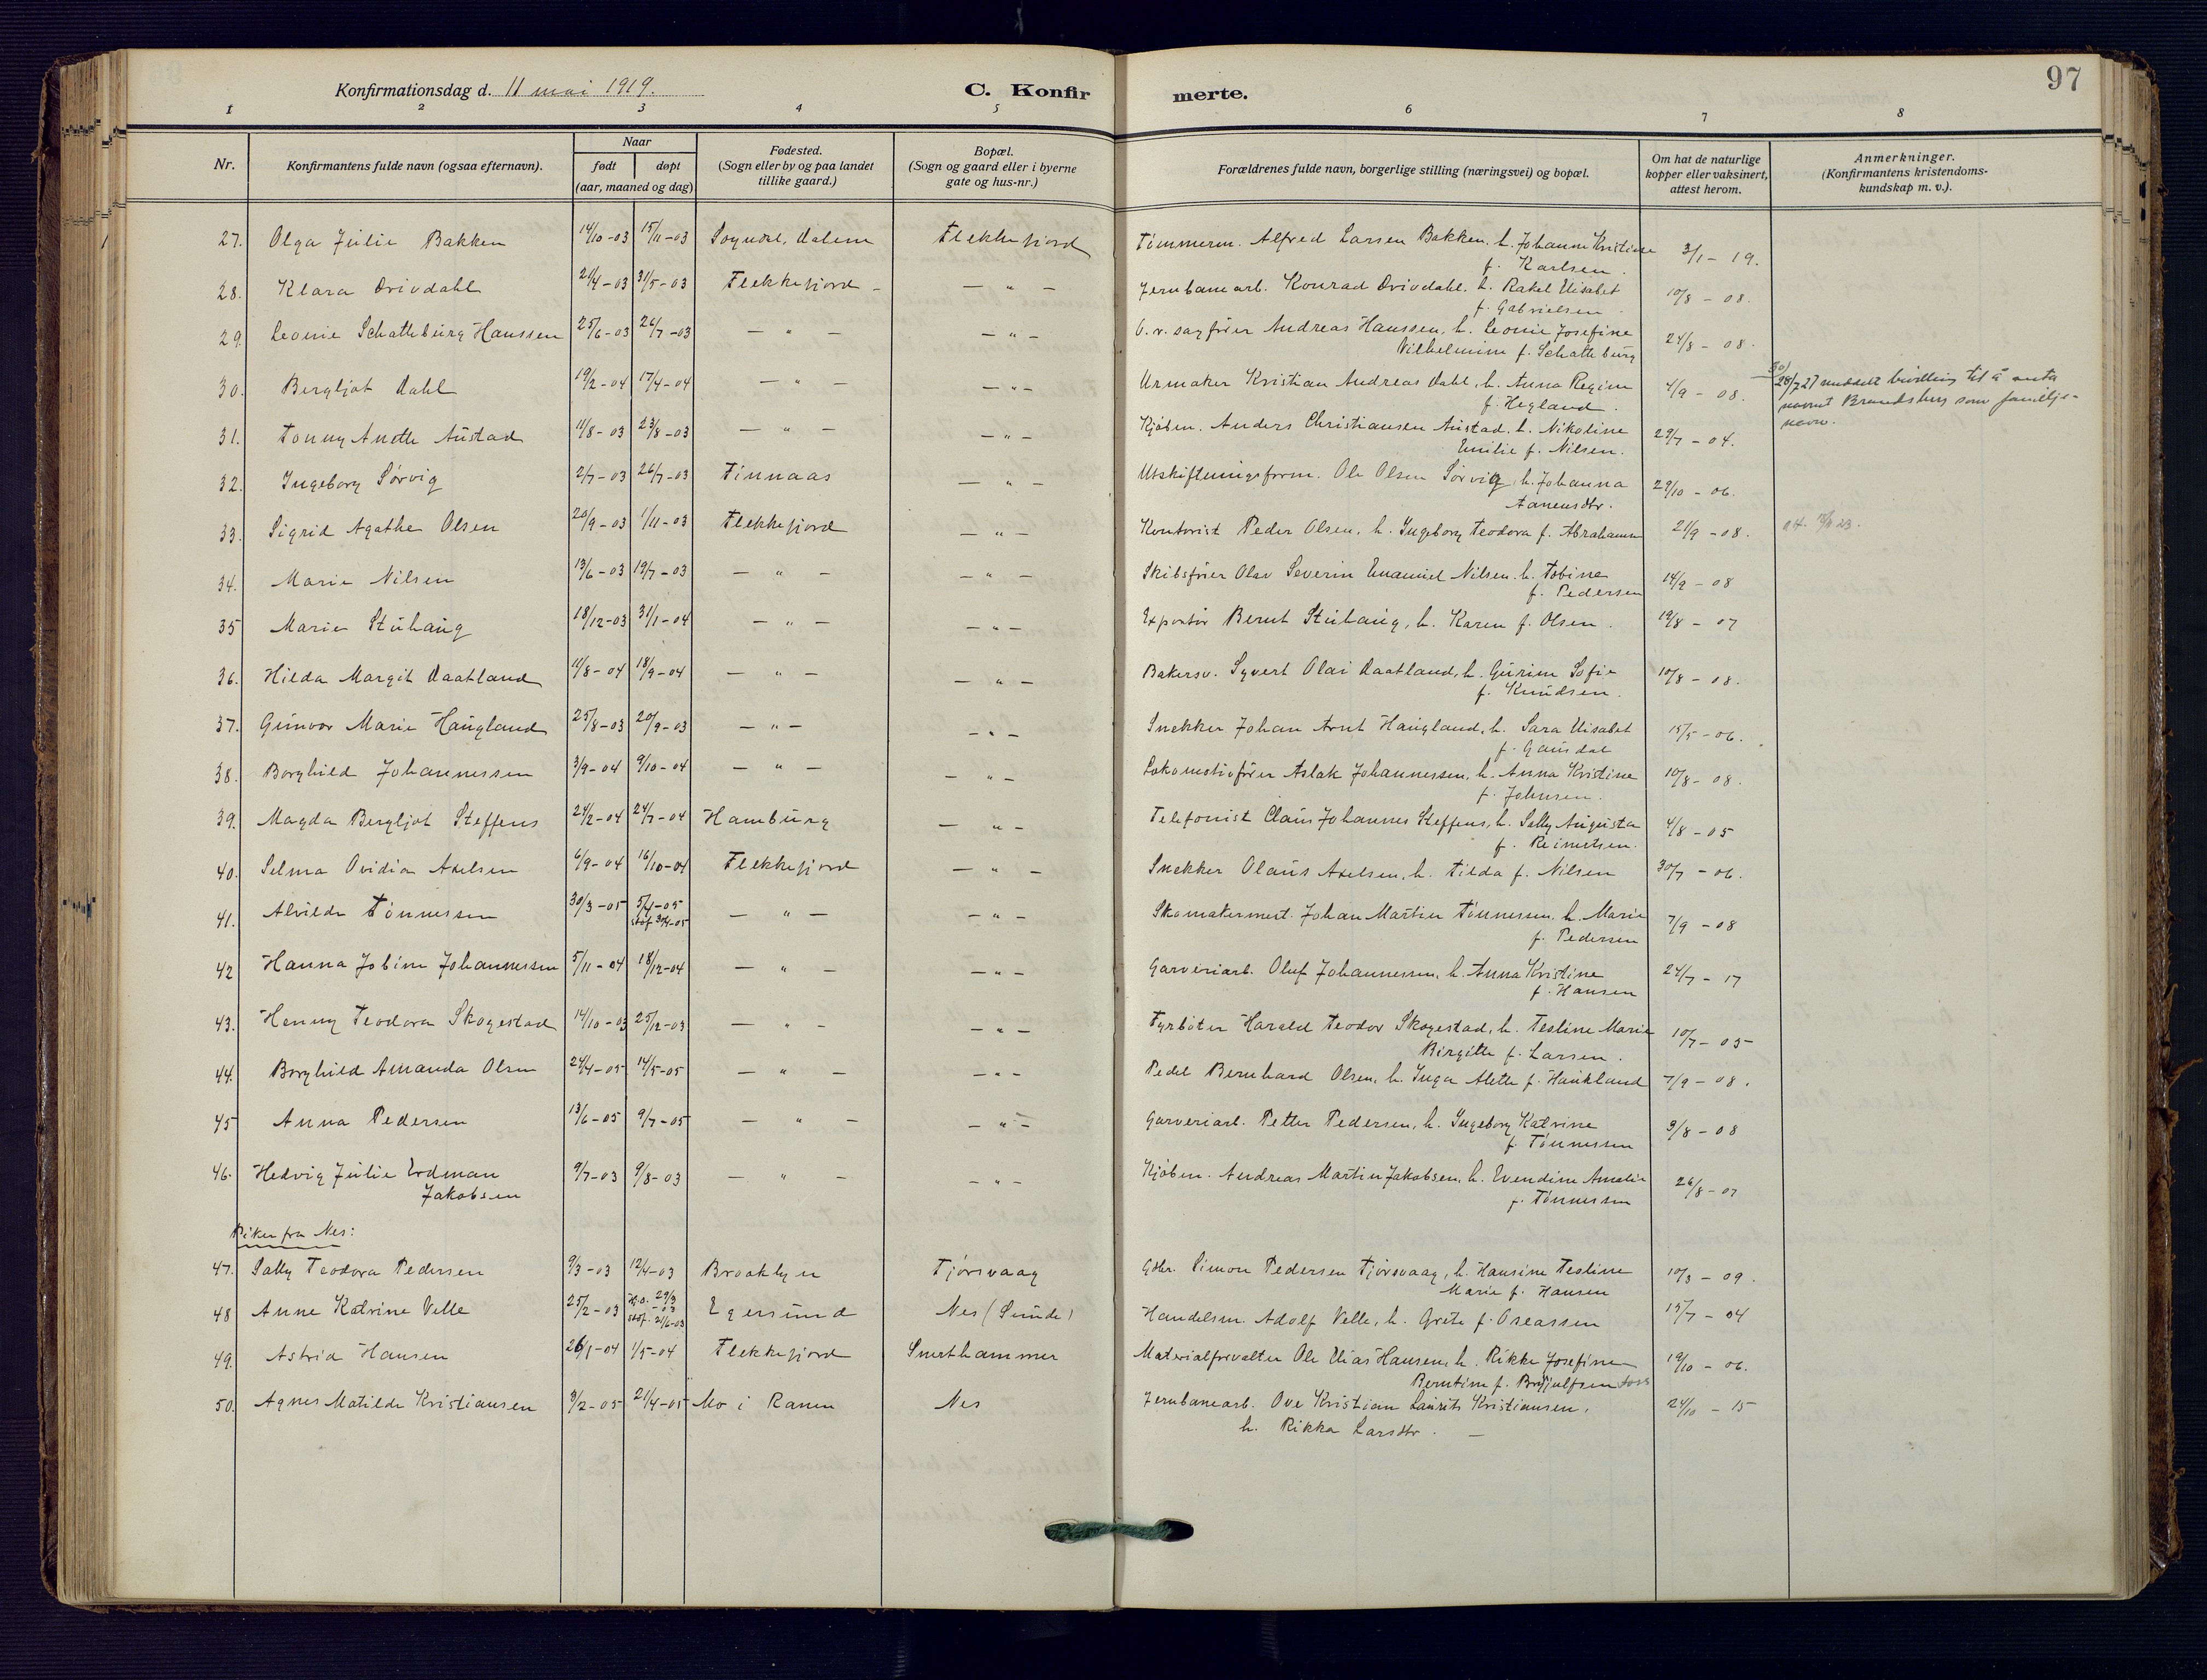 97
Konfirmationsdag d. 11 mai 1919.
C. Konfirmerte.
1 2 3 4 5 6 7 8
Nr. Konfirmantens fulde navn (ogsaa efternavn). Naar født døpt (aar, maaned og dag) Fødested. (Sogn eller by og paa landet tillike gaard.) Bopæl. (Sogn og gaard eller i byerne gate og hus-nr.) Forældrenes fulde navn, borgerlige stilling (næringsvei) og bopæl. Om hat de naturlige kopper eller vaksinert, attest herom. Anmerkninger. (Konfirmantens kristendomskundskap m. v.).
27. Olga Julie Bakken 14/10-03 15/11-03 Sogndal, Dalene Flekkefjord Tømmerm. Alfred Larsen Bakken, h. Johanne Kristine f. Karlsen. 3/1-19.
28. Klara Drivdahl 21/4-03 31/5-03 Flekkefjord - — " — Jernbanearb. Konrad Drivdahl, h. Rakel Elisabet f. Gabrielsen. 10/8-08.
29. Leonie Schatteburg Hanssen 25/6-03 26/7-03 — " — — " — O.r. sagfører Andreas Hanssen, h. Leonie Josefine Vilhelmine f. Schatteburg 24/8-08.
30. Bergljot Dahl 19/2-04 17/4-04 — " — — " — Urmaker Kristian Andreas Dahl, h. Anna Regine f. Hegland. 4/9-08. 28/7 27 meddelt bevilling til å anta navnet Brandsberg som familjenavn.
31. Tonny Anette Austad 11/8-03 23/8-03 — " — — " — Kjøbm. Anders Christiansen Austad, h. Nikoline Emilie f. Nilsen. 29/7-04.
32. Ingeborg Sørvig 2/7-03 26/7-03 Finnaas — " — Utskiftningsform. Ole Olsen Sørvig, h. Johanna Aanensdtr. 29/10-06.
33. Sigrid Agathe Olsen 20/9-03 1/11-03 Flekkefjord — " — Kontorist Peder Olsen, h. Ingeborg Teodora f. Abrahamsen 21/9-08.
34. Marie Nilsen 13/6-03 19/7-03 — " — — " — Skibsfører Olav Severin Emanuel Nilsen, h. Tobine f. Pedersen 14/9-08
35 Marie Stuhaug 18/12-03 31/1-04 — " — — " — Exportør Bernt Stuhaug, h. Karen f. Olsen. 19/8-07
36. Hilda Margit Daatland 11/8-04 18/9-04 — " — — " — Bakersv. Syvert Olai Daatland, h. Gurine Sofie f. Knudsen. 10/8-08.
37. Gunvor Marie Haugland 25/8-03 20/9-03 — " — — " — Snekker Johan Arnt Haugland, h. Sara Elisabet f. Gausdal 15/5-06.
38. Borghild Johannessen 3/9-04 9/10-04 — " — — " — Lokomotivfører Aslak Johannessen, h. Anna Kristine f. Johnsen. 10/8-08.
39. Magda Bergljot Steffens 24/2-04 24/7-04 Hamburg — " — Telefonist Claus Johannes Steffens, h. Selly Augusta f. Reinertsen. 4/8-05
40. Selma Ovidia Axelsen 6/9-04 16/10-04 Flekkefjord — " — Snekker Olaus Axelsen, h. Tilda f. Nilsen 30/7-06.
41. Alvilde Tønnessen 30/3-05 5/4-05 stdf 30/4-05 — " — — " — Skomakermest. Johan Martin Tønnessen, h. Marie f. Pedersen 7/9-08
42 Hanna Jobine Johannessen 5/11-04 18/12-04 — " — — " — Garveriarb. Oluf Johannessen, h. Anna Kristine f. Hansen 24/7-17
43. Henny Teodora Skogestad 14/10-03 25/12-03 — " — — " — Fyrbøter Harald Teodor Skogestad, h. Tealine Marie Birgitte f. Larsen. 10/7-05
44. Borghild Amanda Olsen 24/4-05 14/5-05 — " — — " — Pedel Bernhard Olsen, h. Inga Alette f. Haukland 7/9-08.
45 Anna Pedersen 13/6-05 9/7-05 — " — — " — Garveriarb. Petter Pedersen, h. Ingeborg Katrine f. Tønnessen 3/8-08
46. Hedvig Julie Erdman Jakobsen 9/7-03 9/8-03 — " — — " — Kjøbm. Andreas Martin Jakobsen, h. Evendine Amalie f. Tønnessen 26/8-07
Piker fra Nes:
47. Sally Teodora Pedersen 9/3-03 12/4-03 Brooklyn Tjørsvaag Gbr. Simon Pedersen Tjørsvaag, h. Hansine Tealine Marie f. Hansen 10/3-09.
48 Anne Katrine Velle 25/2-03 Hj.d. 29/3-03 stdf. 21/6-03 Egersund Nes (Sunde) Handelsm. Adolf Velle, h. Grete f. Oreassen 15/7-04
49. Astrid Hansen 26/1-04 1/5-04 Flekkefjord Smerthammer Materialforvalter Ole Elias Hansen, h. Rikke Josefine Berntine f. Brynjulfsen 19/10-06.
50. Agnes Matilde Kristiansen 3/2-05 21/4-05 Mo i Ranen Nes Jernbanearb. Ove Kristian Laurits Kristiansen, h. Rikka Larsdtr. — 24/10-15